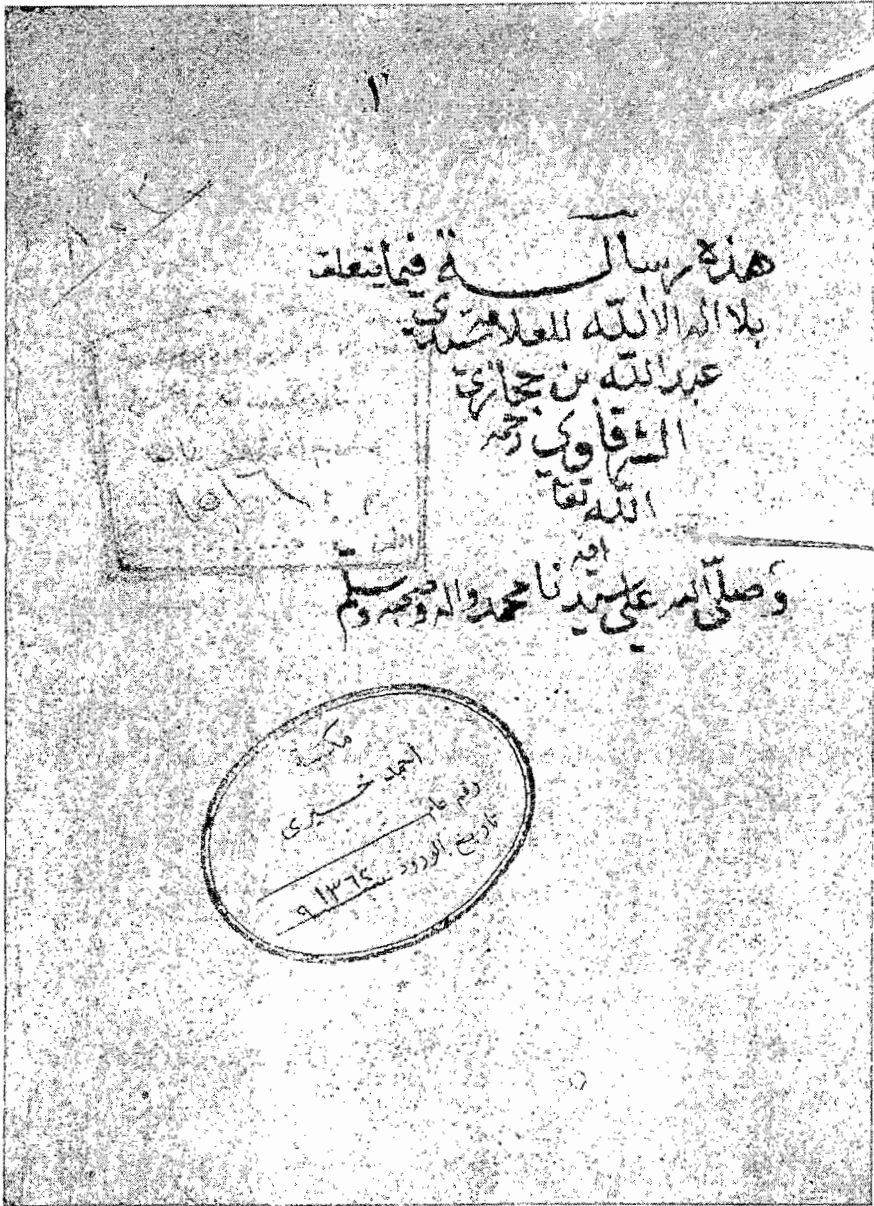 ١
هذه رسالة فيما يتعلق
بلا اله الا الله للعلامة سيدي
عبد الله بن حجازي
الشرقاوي رحمه
الله تعا
امين
وصلى الله على سيدنا محمد واله وصحبه وسلم
مكتبة
احمد خيرى
رقم عام
تاريخ الورود سنة ١٣٦٤ ٩